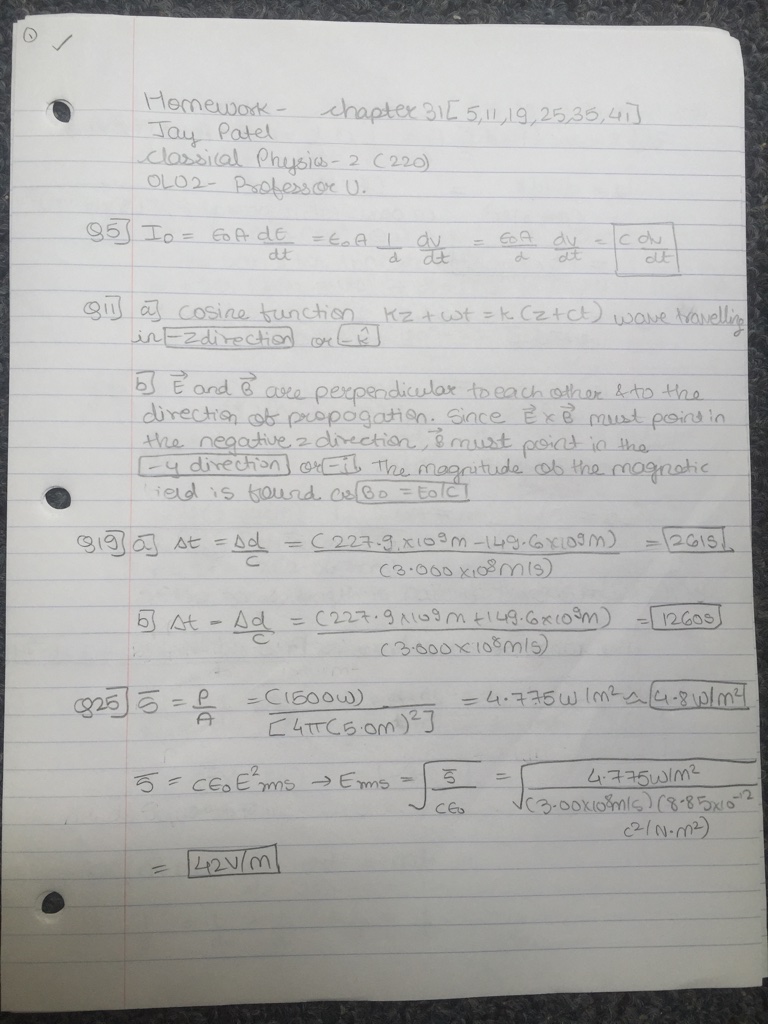 ① ✓
Homework - chapter 31[5,11,19,25,35,41]
Jay Patel
Classical Physics - 2 (220)
OL02 - Professor U.
Q5] I_D = ε₀A dE/dt = ε₀A 1/d dv/dt = ε₀A/d dv/dt = C dv/dt
Q11] a] cosine function Kz + wt = k(z+ct) wave travelling
in -z direction or -k̂
b] E⃗ and B⃗ are perpendicular to each other & to the
direction of propogation. Since E⃗ x B⃗ must point in
the negative z direction, B⃗ must point in the
-y direction or -j. The magnitude of the magnetic
ield is found as B₀ = E₀/C
Q19] a] Δt = Δd/c = (227.9 x 10⁹m - 149.6 x 10⁹m)/(3.000 x 10⁸ m/s) = 261s
b] Δt = Δd/c = (227.9 x 10⁹m + 149.6 x 10⁹m)/(3.000 x 10⁸ m/s) = 1260s
Q25] S̄ = P/A = (1500W)/[4π(5.0m)²] = 4.775W/m² ≈ 4.8W/m²
S̄ = cε₀E²rms → Erms = √(S̄/cε₀) = √(4.775W/m²/(3.00x10⁸m/s)(8.85x10⁻¹²
c²/N.m²)
= 42V/m